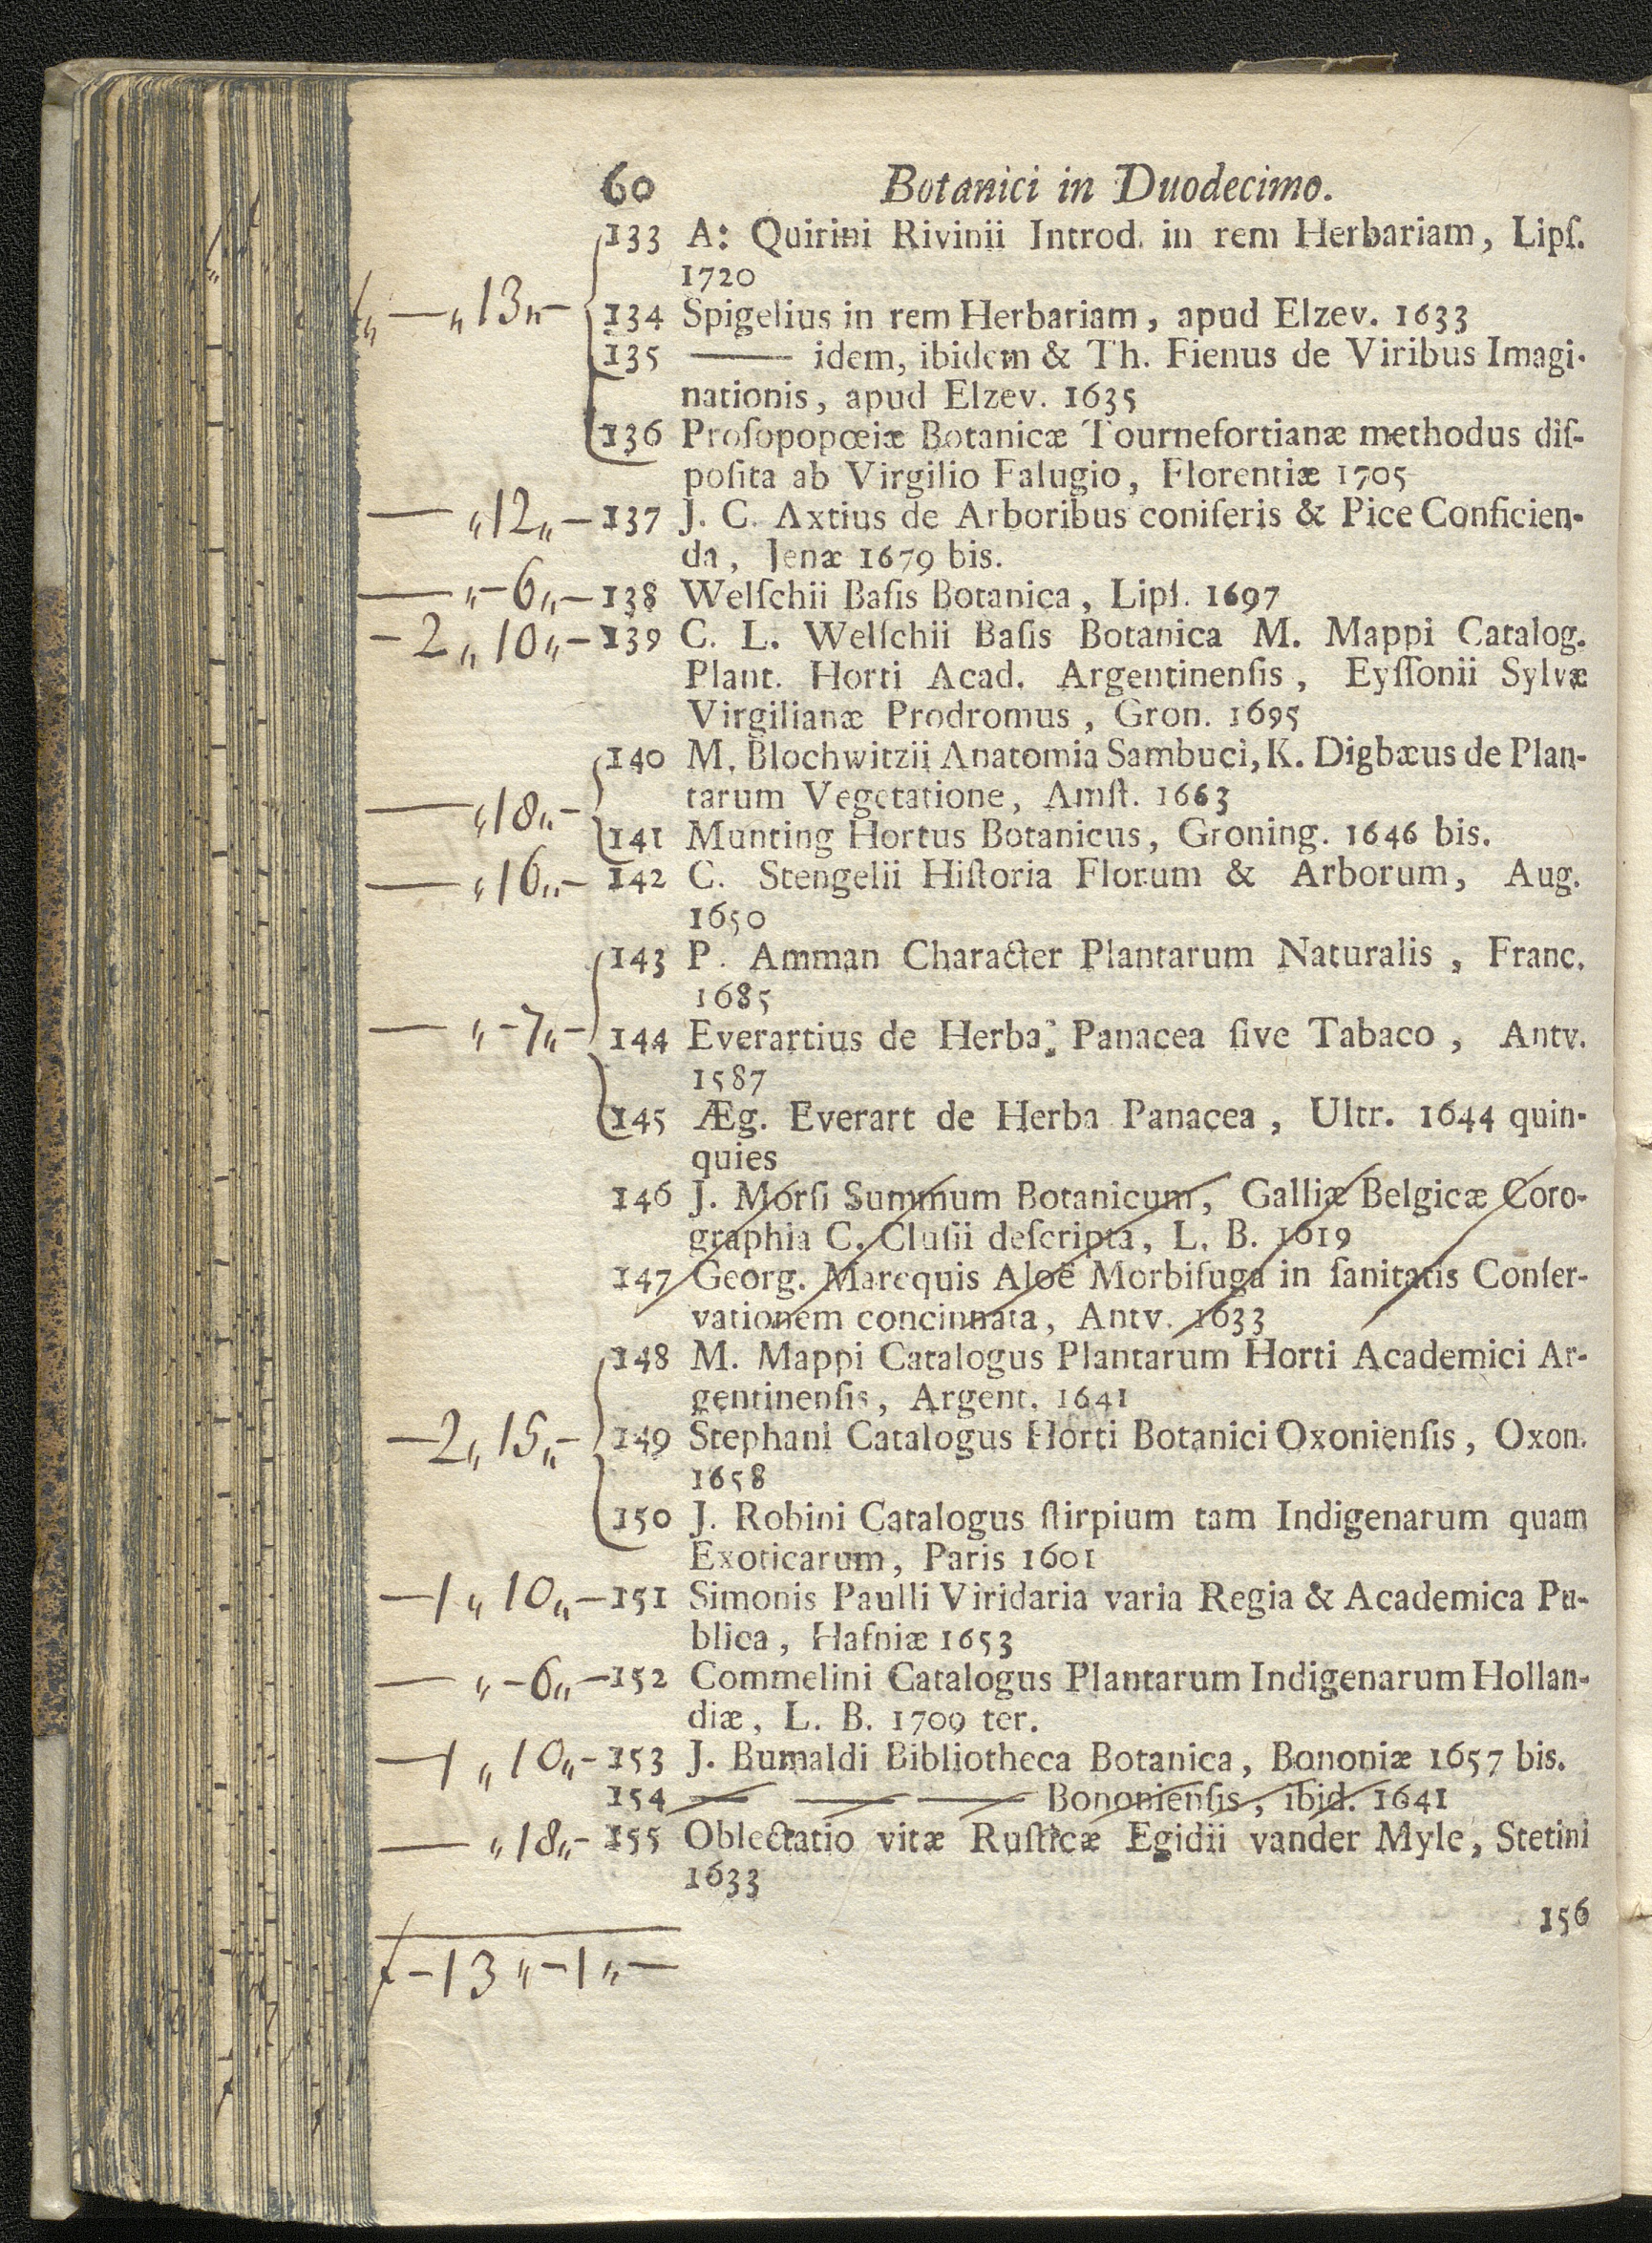 60 Botanici in Duodecimo.
133 A: Quirini Rivinii Introd. in rem Herbariam, Lipſ.
1720
— „ 13 „ - 134 Spigelius in rem Herbariam, apud Elzev. 1633
135 —— idem, ibidem & Th. Fienus de Viribus Imagi-
nationis, apud Elzev. 1635
136 Proſopopœiæ Botanicæ Tournefortianæ methodus diſ-
poſita ab Virgilio Falugio, Florentiæ 1705
— „ 12 „ - 137 J. C. Axtius de Arboribus coniferis & Pice Conficien-
da, Jenæ 1679 bis.
— „ - 6 „ - 138 Welſchii Baſis Botanica, Lipſ. 1697
- 2 „ 10 „ - 139 C. L. Welſchii Baſis Botanica M. Mappi Catalog.
Plant. Horti Acad. Argentinenſis, Eyſſonii Sylvæ
Virgilianæ Prodromus, Gron. 1695
140 M. Blochwitzii Anatomia Sambuci, K. Digbæus de Plan-
— „ 18 „ - tarum Vegetatione, Amſt. 1663
141 Munting Hortus Botanicus, Groning. 1646 bis.
— „ 16 „ - 142 C. Stengelii Hiſtoria Florum & Arborum, Aug.
1650
143 P. Amman Character Plantarum Naturalis, Franc.
1685
— „ - 7 „ - 144 Everartius de Herba Panacea ſive Tabaco, Antv.
1587
145 Æg. Everart de Herba Panacea, Ultr. 1644 quin-
quies
146 J. Morſi Summum Botanicum, Galliæ Belgicæ Coro-
graphia C. Cluſii deſcripta, L. B. 1619
147 Georg. Marcquis Aloë Morbifuga in ſanitatis Conſer-
vationem concinnata, Antv. 1633
148 M. Mappi Catalogus Plantarum Horti Academici Ar-
gentinenſis, Argent. 1641
- 2 „ 15 „ - 149 Stephani Catalogus Horti Botanici Oxonienſis, Oxon.
1658
150 J. Robini Catalogus ſtirpium tam Indigenarum quam
Exoticarum, Paris 1601
- 1 „ 10 „ - 151 Simonis Paulli Viridaria varia Regia & Academica Pu-
blica, Hafniæ 1653
— „ - 6 „ - 152 Commelini Catalogus Plantarum Indigenarum Hollan-
diæ, L. B. 1709 ter.
- 1 „ 10 „ - 153 J. Bumaldi Bibliotheca Botanica, Bononiæ 1657 bis.
154 — —— —— Bononienſis, ibid. 1641
— „ 18 „ - 155 Oblectatio vitæ Ruſticæ Egidii vander Myle, Stetini
1633
156
ƒ - 13 „ - 1 „ -